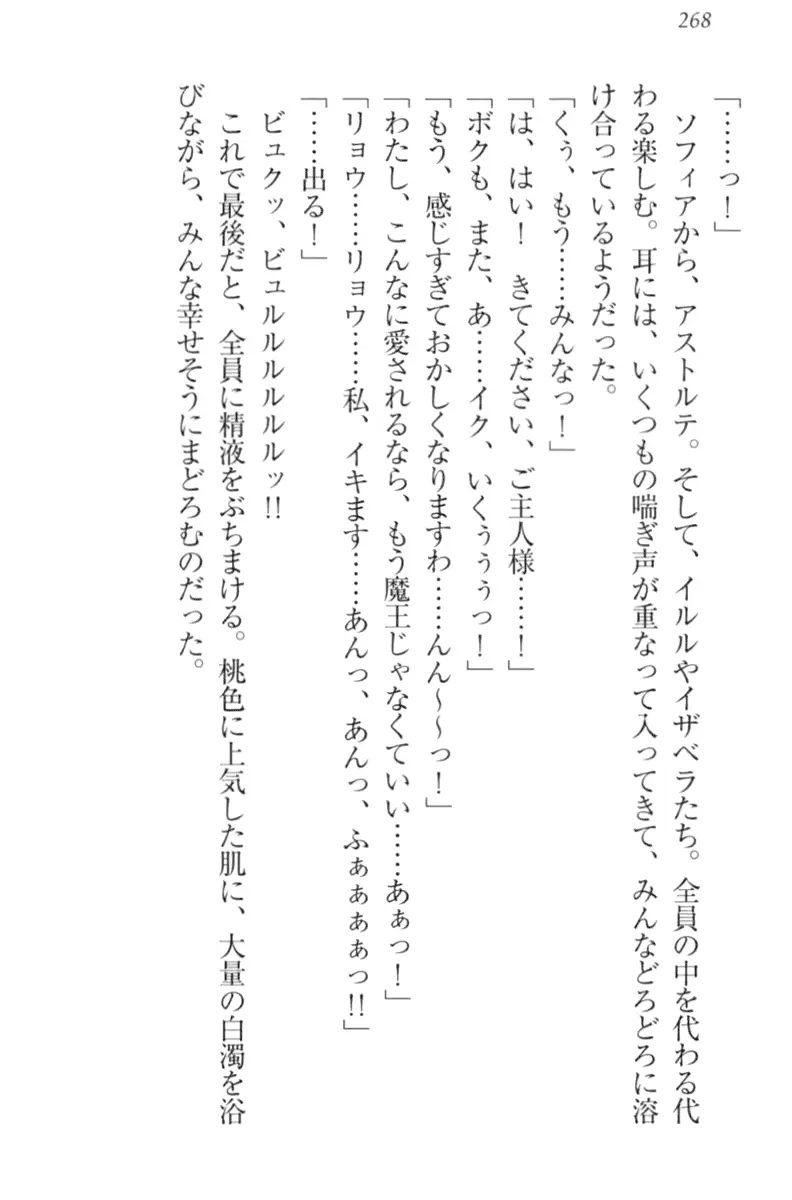 268
「……っ！」
　ソフィアから、アストルテ。そして、イルルやイザベラたち。全員の中を代わる代
わる楽しむ。耳には、いくつもの喘ぎ声が重なって入ってきて、みんなどろどろに溶
け合っているようだった。
「くぅ、もう……みんなっ！」
「は、はい！　きてください、ご主人様……！」
「ボクも、また、あ……イク、いくぅぅぅっ！」
「もう、感じすぎておかしくなりますわ……んん～～っ！」
「わたし、こんなに愛されるなら、もう魔王じゃなくていい……あぁっ！」
「リョウ……リョウ……私、イキます……あんっ、あんっ、ふぁぁぁぁっ!!」
「……出る！」
　ビュクッ、ビュルルルルルルッ!!
　これで最後だと、全員に精液をぶちまける。桃色に上気した肌に、大量の白濁を浴
びながら、みんな幸せそうにまどろむのだった。